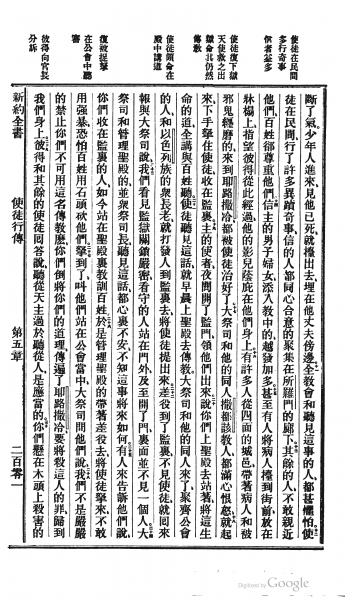 使徒在民間
多行奇事
信者益多
使徒復下獄
天使救之出
獄命其仍然
傳教
使徒領命在
殿中講道
復被捉拏
在公會中聽
審
彼得向官長
分訴
斷了氣少年人進來見他已死就擡出去埋在他丈夫傍邊全教會和聽見這事的人都甚懼怕使
徒在民間行了許多異蹟奇事信的人都同心合意的聚集在所羅門的廊下其餘的人不敢親近
他們百姓卻尊重他們信主的男子婦女添入教中的越發加多甚至有人將病人擡到街前放在
牀榻上指望彼得從此經過他的影兒蔭庇在他們身上有許多人從四面的城邑帶著病人和被
邪鬼纏磨的來到耶路撒冷都被使徒治好了大祭司和他的同人撒都該教人都滿心恨怒就起
來下手拏住使徒收在監裏主的使者夜間開了監門領他們出來說你們上聖殿去站著將這生
命的道全講與百姓聽使徒聽見這話就早晨上聖殿去傳教大祭司和他的同人來了聚齊公會
的人和以色列族的衆長老就打發人到監裏去將使徒提出來差役到了監裏不見使徒就回來
報與大祭司說我們看見監獄關鎖嚴密看守的人站在門外及至開了門裏面並不見一個人大
祭司和管理聖殿的並衆祭司長聽見這話都心裏不安不知這事將來如何有人來告訴他們說
你們收在監裏的人如今站在聖殿裏教訓百姓於是管理聖殿的帶著差役去將使徒拏來不敢
用強暴恐怕百姓用石頭砍他們拏到了叫他們站在公會當中大祭司問他們說我們不是嚴嚴
的禁止你們不可用這名傳教麽你們倒將你們的道理傳遍了耶路撒冷要將殺這人的罪歸到
我們身上彼得和其餘的使徒回答說聽從天主過於聽從人是應當的你們懸在木頭上殺害的
新約全書
使徒行傳
第五章
二百零一
Digitized by Google